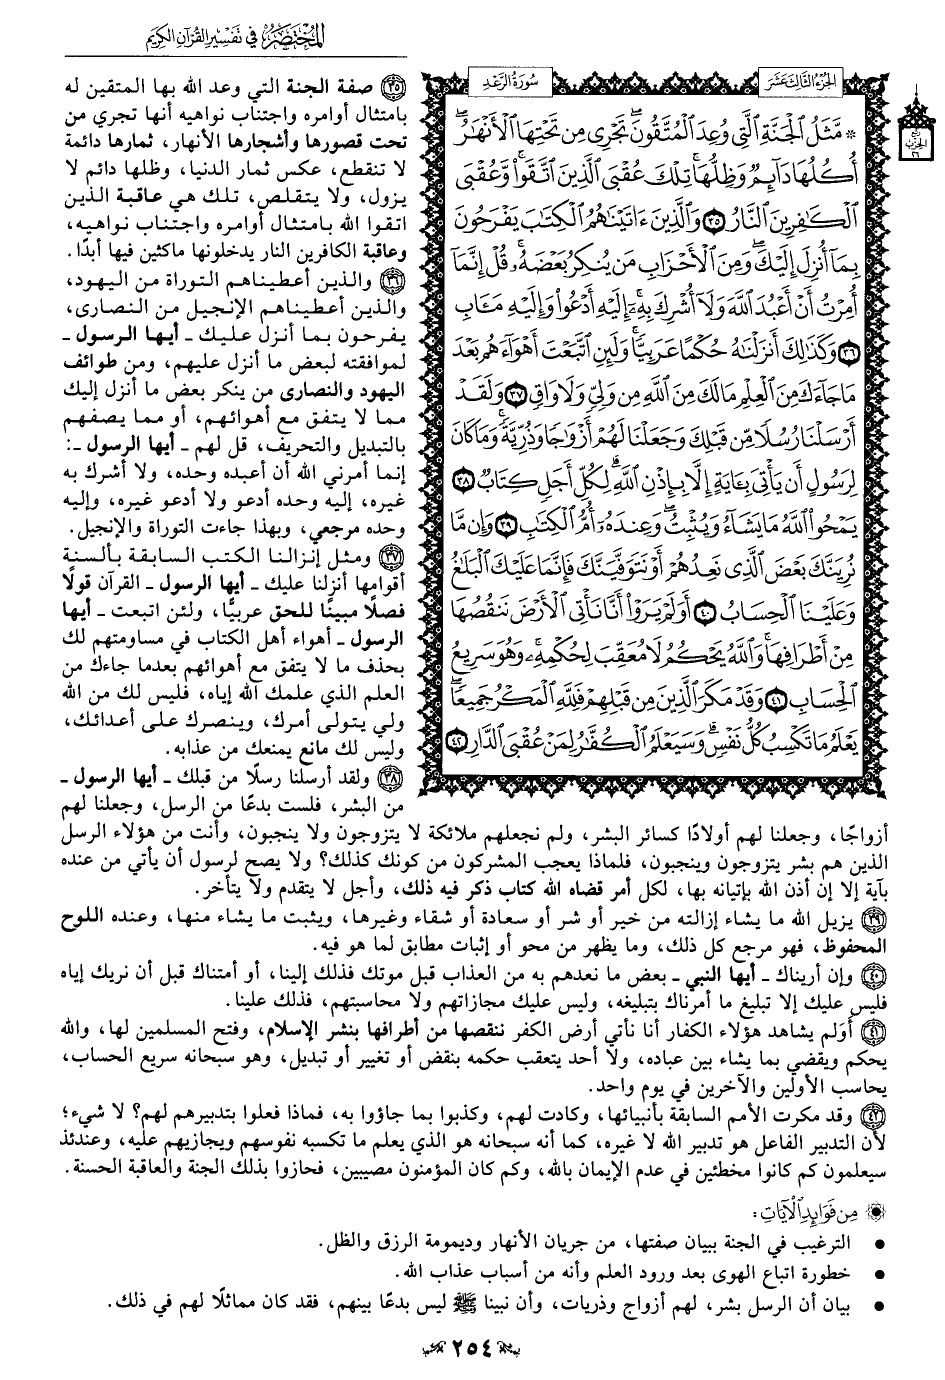 المختصر في تفسير القرآن الكريم
الجزء الثالث عشر
سورة الرعد
ربع الحزب ٢٦
* مَّثَلُ ٱلۡجَنَّةِ ٱلَّتِي وُعِدَ ٱلۡمُتَّقُونَۖ تَجۡرِي مِن تَحۡتِهَا ٱلۡأَنۡهَٰرُۖ
أُكُلُهَا دَآئِمٞ وَظِلُّهَاۚ تِلۡكَ عُقۡبَى ٱلَّذِينَ ٱتَّقَواْۚ وَّعُقۡبَى
ٱلۡكَٰفِرِينَ ٱلنَّارُ ٣٥ وَٱلَّذِينَ ءَاتَيۡنَٰهُمُ ٱلۡكِتَٰبَ يَفۡرَحُونَ
بِمَآ أُنزِلَ إِلَيۡكَۖ وَمِنَ ٱلۡأَحۡزَابِ مَن يُنكِرُ بَعۡضَهُۥۚ قُلۡ إِنَّمَآ
أُمِرۡتُ أَنۡ أَعۡبُدَ ٱللَّهَ وَلَآ أُشۡرِكَ بِهِۦٓۚ إِلَيۡهِ أَدۡعُواْ وَإِلَيۡهِ مَـَٔابِ
٣٦ وَكَذَٰلِكَ أَنزَلۡنَٰهُ حُكۡمًا عَرَبِيّٗاۚ وَلَئِنِ ٱتَّبَعۡتَ أَهۡوَآءَهُم بَعۡدَ
مَا جَآءَكَ مِنَ ٱلۡعِلۡمِ مَا لَكَ مِنَ ٱللَّهِ مِن وَلِيّٖ وَلَا وَاقٖ ٣٧ وَلَقَدۡ
أَرۡسَلۡنَا رُسُلٗا مِّن قَبۡلِكَ وَجَعَلۡنَا لَهُمۡ أَزۡوَٰجٗا وَذُرِّيَّةٗۚ وَمَا كَانَ
لِرَسُولٍ أَن يَأۡتِيَ بِـَٔايَةٍ إِلَّا بِإِذۡنِ ٱللَّهِۗ لِكُلِّ أَجَلٖ كِتَابٞ ٣٨
يَمۡحُواْ ٱللَّهُ مَا يَشَآءُ وَيُثۡبِتُۖ وَعِندَهُۥٓ أُمُّ ٱلۡكِتَٰبِ ٣٩ وَإِن مَّا
نُرِيَنَّكَ بَعۡضَ ٱلَّذِي نَعِدُهُمۡ أَوۡ نَتَوَفَّيَنَّكَ فَإِنَّمَا عَلَيۡكَ ٱلۡبَلَٰغُ
وَعَلَيۡنَا ٱلۡحِسَابُ ٤٠ أَوَلَمۡ يَرَوۡاْ أَنَّا نَأۡتِي ٱلۡأَرۡضَ نَنقُصُهَا
مِنۡ أَطۡرَافِهَاۚ وَٱللَّهُ يَحۡكُمُ لَا مُعَقِّبَ لِحُكۡمِهِۦۚ وَهُوَ سَرِيعُ
ٱلۡحِسَابِ ٤١ وَقَدۡ مَكَرَ ٱلَّذِينَ مِن قَبۡلِهِمۡ فَلِلَّهِ ٱلۡمَكۡرُ جَمِيعٗاۖ
يَعۡلَمُ مَا تَكۡسِبُ كُلُّ نَفۡسٖۗ وَسَيَعۡلَمُ ٱلۡكُفَّٰرُ لِمَنۡ عُقۡبَى ٱلدَّارِ ٤٢
٣٥ صفة الجنة التي وعد الله بها المتقين له
بامتثال أوامره واجتناب نواهيه أنها تجري من
تحت قصورها وأشجارها الأنهار، ثمارها دائمة
لا تنقطع، عكس ثمار الدنيا، وظلها دائم لا
يزول، ولا يتقلص، تلك هي عاقبة الذين
اتقوا الله بامتثال أوامره واجتناب نواهيه،
وعاقبة الكافرين النار يدخلونها ماكثين فيها أبدًا.
٣٦ والذين أعطيناهم التوراة من اليهود،
والذين أعطيناهم الإنجيل من النصارى،
يفرحون بما أنزل عليك ـ أيها الرسول ـ
لموافقته لبعض ما أنزل عليهم، ومن طوائف
اليهود والنصارى من ينكر بعض ما أنزل إليك
مما لا يتفق مع أهوائهم، أو مما يصفهم
بالتبديل والتحريف، قل لهم ـ أيها الرسول ـ:
إنما أمرني الله أن أعبده وحده، ولا أشرك به
غيره، إليه وحده أدعو ولا أدعو غيره، وإليه
وحده مرجعي، وبهذا جاءت التوراة والإنجيل.
٣٧ ومثل إنزالنا الكتب السابقة بألسنة
أقوامها أنزلنا عليك ـ أيها الرسول ـ القرآن قولًا
فصلًا مبينًا للحق عربيًّا، ولئن اتبعت ـ أيها
الرسول ـ أهواء أهل الكتاب في مساومتهم لك
بحذف ما لا يتفق مع أهوائهم بعدما جاءك من
العلم الذي علمك الله إياه، فليس لك من الله
ولي يتولى أمرك، وينصرك على أعدائك،
وليس لك مانع يمنعك من عذابه.
٣٨ ولقد أرسلنا رسلًا من قبلك ـ أيها الرسول ـ
من البشر، فلست بدعًا من الرسل، وجعلنا لهم
أزواجًا، وجعلنا لهم أولادًا كسائر البشر، ولم نجعلهم ملائكة لا يتزوجون ولا ينجبون، وأنت من هؤلاء الرسل
الذين هم بشر يتزوجون وينجبون، فلماذا يعجب المشركون من كونك كذلك؟ ولا يصح لرسول أن يأتي من عنده
بآية إلا إن أذن الله بإتيانه بها، لكل أمر قضاه الله كتاب ذكر فيه ذلك، وأجل لا يتقدم ولا يتأخر.
٣٩ يزيل الله ما يشاء إزالته من خير أو شر أو سعادة أو شقاء وغيرها، ويثبت ما يشاء منها، وعنده اللوح
المحفوظ، فهو مرجع كل ذلك، وما يظهر من محو أو إثبات مطابق لما هو فيه.
٤٠ وإن أريناك ـ أيها النبي ـ بعض ما نعدهم به من العذاب قبل موتك فذلك إلينا، أو أمتناك قبل أن نريك إياه
فليس عليك إلا تبليغ ما أمرناك بتبليغه، وليس عليك مجازاتهم ولا محاسبتهم، فذلك علينا.
٤١ أَوَلم يشاهد هؤلاء الكفار أنا نأتي أرض الكفر ننقصها من أطرافها بنشر الإسلام، وفتح المسلمين لها، والله
يحكم ويقضي بما يشاء بين عباده، ولا أحد يتعقب حكمه بنقض أو تغيير أو تبديل، وهو سبحانه سريع الحساب،
يحاسب الأولين والآخرين في يوم واحد.
٤٢ وقد مكرت الأمم السابقة بأنبيائها، وكادت لهم، وكذبوا بما جاؤوا به، فماذا فعلوا بتدبيرهم لهم؟ لا شيء؛
لأن التدبير الفاعل هو تدبير الله لا غيره، كما أنه سبحانه هو الذي يعلم ما تكسبه نفوسهم ويجازيهم عليه، وعندئذ
سيعلمون كم كانوا مخطئين في عدم الإيمان بالله، وكم كان المؤمنون مصيبين، فحازوا بذلك الجنة والعاقبة الحسنة.
من فوائد الآيات:
• الترغيب في الجنة ببيان صفتها، من جريان الأنهار وديمومة الرزق والظل.
• خطورة اتباع الهوى بعد ورود العلم وأنه من أسباب عذاب الله.
• بيان أن الرسل بشر، لهم أزواج وذريات، وأن نبينا ﷺ ليس بدعًا بينهم، فقد كان مماثلًا لهم في ذلك.
٢٥٤